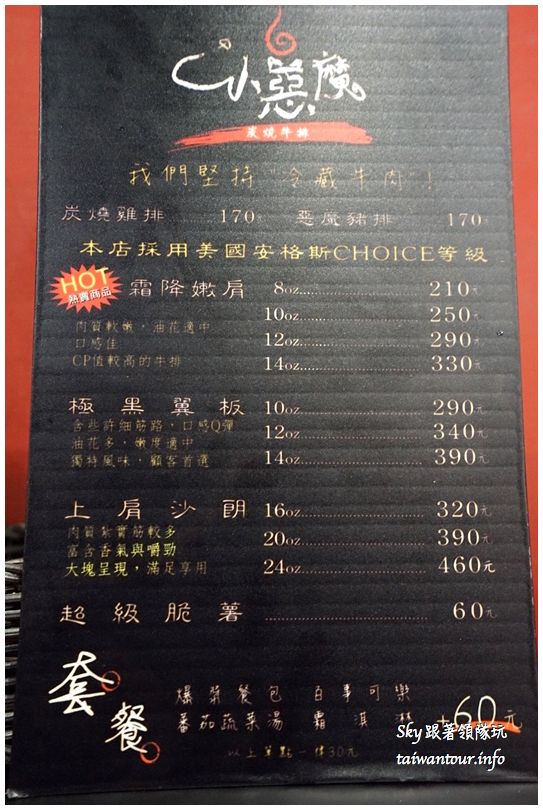 小惡魔
炭燒牛排
我們堅持"冷藏牛肉"!
炭燒雞排 ...... 170元 惡魔豬排 ...... 170元
本店採用美國安格斯CHOICE等級
HOT
熱賣商品
霜降嫩肩 8oz........................210元
10oz........................250元
肉質軟嫩，油花適中
口感佳 12oz........................290元
CP值較高的牛排 14oz........................330元
極黑翼板 10oz........................290元
含些許細筋路，口感Q彈
油花多，嫩度適中 12oz........................340元
獨特風味，顧客首選 14oz........................390元
上肩沙朗 16oz........................320元
肉質紮實筋較多
富含香氣與嚼勁 20oz........................390元
大塊呈現，滿足享用 24oz........................460元
超級脆薯 ........................60元
套餐
爆漿餐包 百事可樂
番茄蔬菜湯 霜淇淋 +60元
以上單點一律30元
Sky跟著領隊玩
taiwantour.info